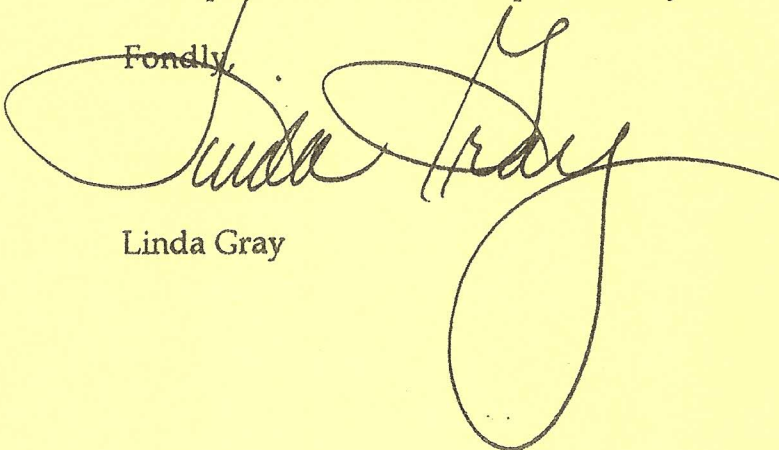 Fondly,
Linda Gray
Linda Gray